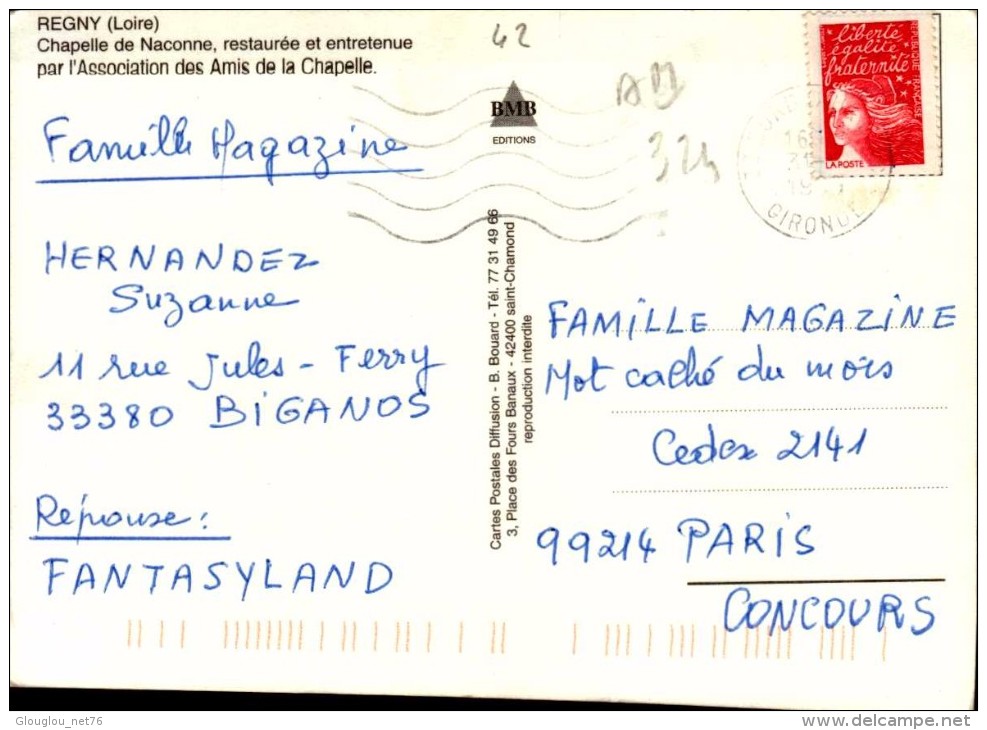 REGNY (Loire)
Chapelle de Naconne, restaurée et entretenue
par l'Association des Amis de la Chapelle.
42
BMB
EDITIONS
324
liberté
égalité
fraternité
RÉPUBLIQUE FRANÇAISE
LA POSTE
GIRONDE
Famille Magazine
HERNANDEZ
Suzanne
11 rue Jules-Ferry
33380 BIGANOS
Réponse :
FANTASYLAND
Cartes Postales Diffusion - B. Bouard - Tél. 77 31 49 66
3, Place des Fours Banaux - 42400 saint-Chamond
reproduction interdite
FAMILLE MAGAZINE
Mot caché du mois
Cedex 2141
99214 PARIS
CONCOURS
Glouglou_net76
delcampe.net